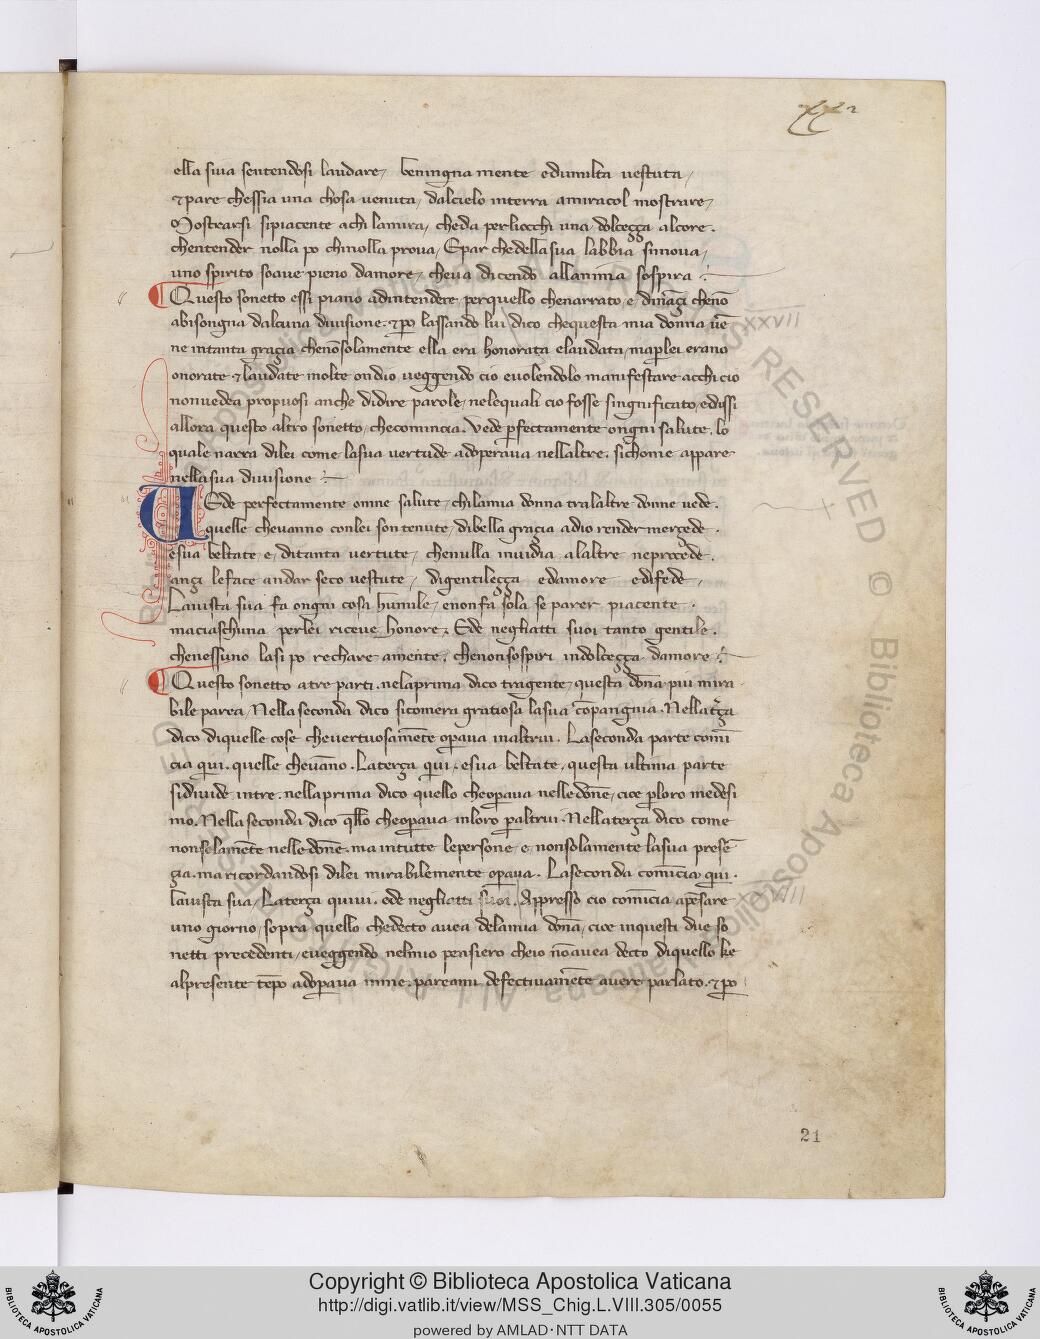 xxi
ella siua sentendosi laudare, beningna mente edumilta uestuta,
⁊pare chessia una chosa uenuta, dalcielo interra amiracol mostrare,
Mostrarsi sipiacente achi lamira, cheda perliocchi una, dolceçça alcore.
chentender nolla po chinolla proua, Epar chedella sua labbia simoua,
uno spirito soaue pieno damore, cheua dicendo allanima sospira
Questo sonetto essi piano adintendere, perquello chenarrato, e dinançi chenō
abisongna dalcuna diuisione. ⁊ꝑo lassando lui dico chequesta mia donna uē
xxvii
ne intanta gracia chenōsolamente ella era honorata elaudata, maꝑlei erano
onorate ⁊laudate molte ondio ueggendo cio euolendolo manifestare acchi cio
nonuedea propuosi anche didire parole, nelequali cio fosse singnificato, edissi
allora questo altro sonetto, checomincia. Vede ꝑfectamente ongni salute. lo
quale narra dilei come lasua uertude adoperaua nellaltre. sichome appare
nellasua diuisione
VEde perfectamente onne salute, chilamia donna tralaltre donne uede.
quelle cheuanno conlei son tenute, dibella gracia adio render mercede.
esua beltate e, ditanta uertute, chenulla inuidia alaltre neprocede.
ançi leface andar seco uestute, digentileçça edamore edifede,
Lauista sua fa ongni cosa humile, enonfa sola se parer piacente.
maciaschuna perlei riceue honore, Ede neghatti suoi tanto gentile.
chenessuno lasi po rechare amente, chenonsospiri indolceçça damore
Questo sonetto a tre parti. nelaprima dico tragente, questa dōna piu mira
bile parea, Nella seconda dico sicomera gratiosa lasua cōpangnia. Nellaterça
dico diquelle cose cheuertuosamēte oꝑaua inaltrui. Laseconda parte comī
cia qui. quelle cheuāno. Laterça qui. esua beltate, questa ultima parte
sidiuide intre. nellaprima dico quello cheoꝑaua nelle dōne, cioe ꝑloro medesi
mo. Nella seconda dico qllo cheoꝑaua inloro ꝑaltrui. Nellaterça dico come
nonsolamēte nelle dōne. ma intutte lepersone, e, nonsolamente lasua presē
ça. ma ricordandosi dilei mirabilemente oꝑaua. Laseconda comīcia qui.
lauista sua, Laterça quiui. ede neghatti suoi. Appresso cio comīcia apēsare
xxviii
uno giorno, sopra quello chedecto auea delamia dōna, cioe inquesti due so
netti precedenti, eueggendo nelmio pensiero cheio nōauea decto diquello ke
alpresente tēpo adoꝑaua inme. pareami defectiuamēte auere parlato. ⁊ꝑo
21
Copyright © Biblioteca Apostolica Vaticana
http://digi.vatlib.it/view/MSS_Chig.L.VIII.305/0055
powered by AMLAD·NTT DATA
BIBLIOTECA APOSTOLICA VATICANA
BIBLIOTECA APOSTOLICA VATICANA